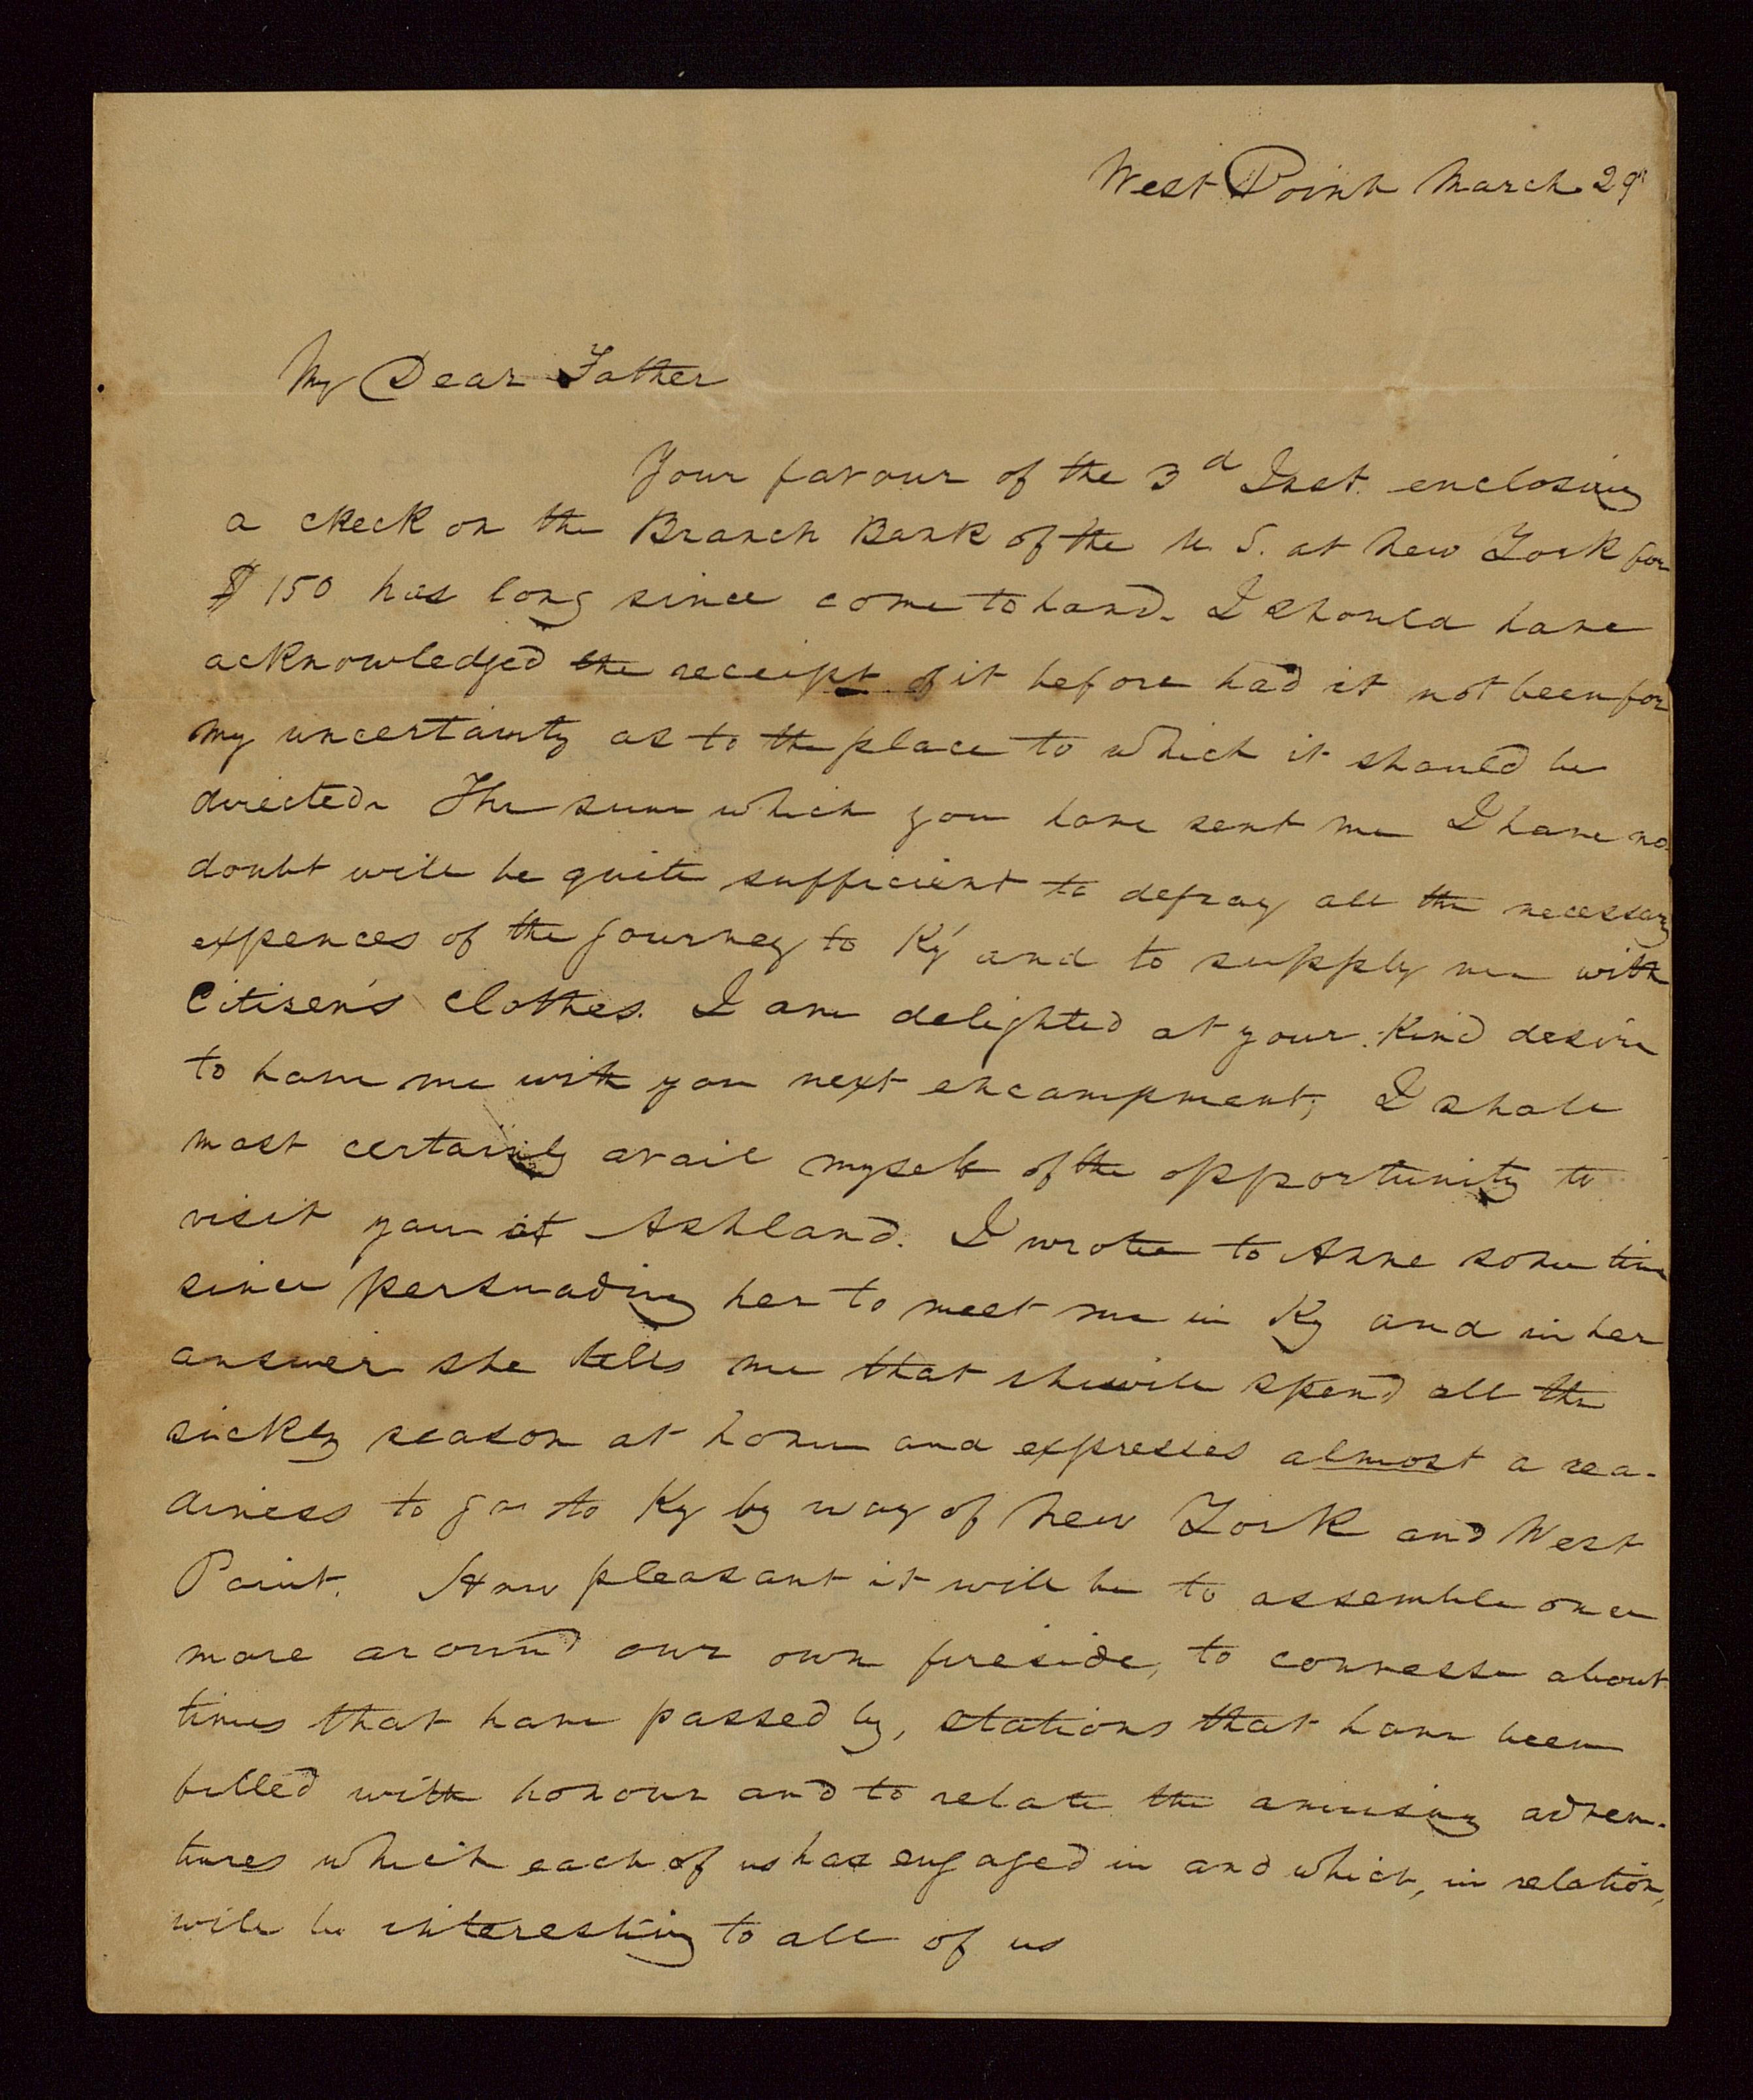 West Point March 29th
My Dear Father
Your favour of the 3d Inst. enclosing
a check on the Branch Bank of the U. S. at New York for
$150 has long since come to hand. I should have
acknowledged the receipt of it before had it not been for
my uncertainty as to the place to which it should be
directed. The sum which you have sent me I have no
doubt will be quite sufficient to defray all the necessary
expences of the journey to Ky and to supply me with
Citisen's clothes. I am delighted at your kind desire
to have me with you next encampment; I shall
most certainly avail myself of the opportunity to
visit you at Ashland. I wrote to Anne some time
since persuading her to meet me in Ky and in her
answer she tells me that she will spend all the
sickly season at home and expresses almost a rea-
diness to go to Ky by way of New York and West
Point. How pleasant it will be to assemble once
more around our own fireside, to converse about
times that have passed by, stations that have been
filled with honour and to relate the amusing adven-
tures which each of us has engaged in and which, in relation,
will be interesting to all of us